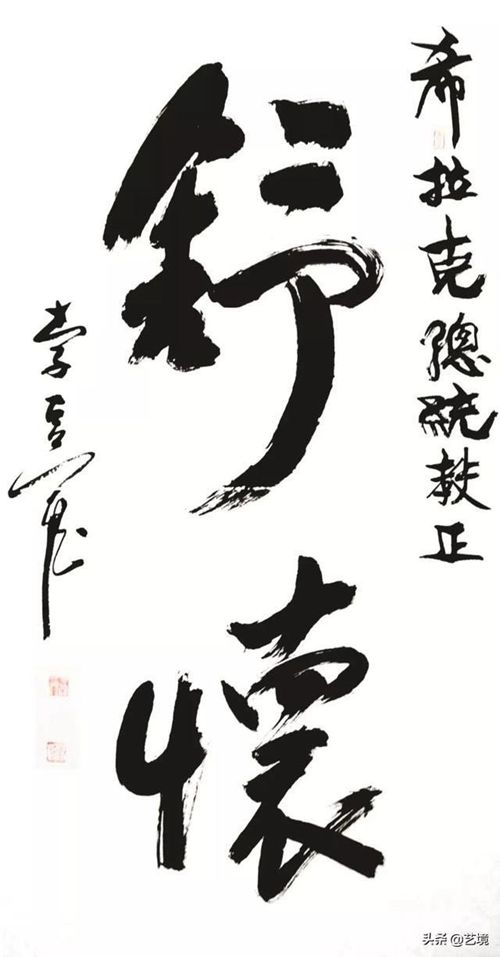 希拉克總統教正
舒懷
头条 @艺境